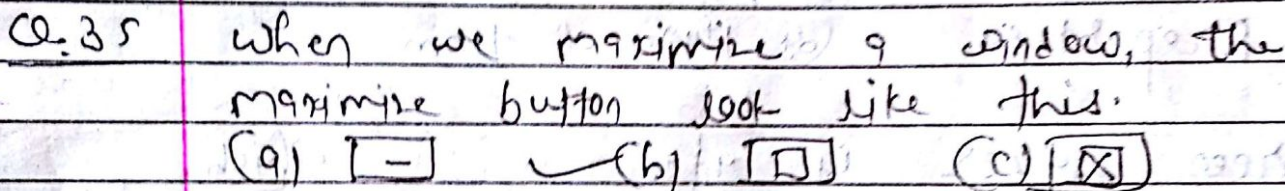 Q.35 When we maximize a window, the
maximise button look like this.
(a) [-] ✓(b) [□] (c) [X]